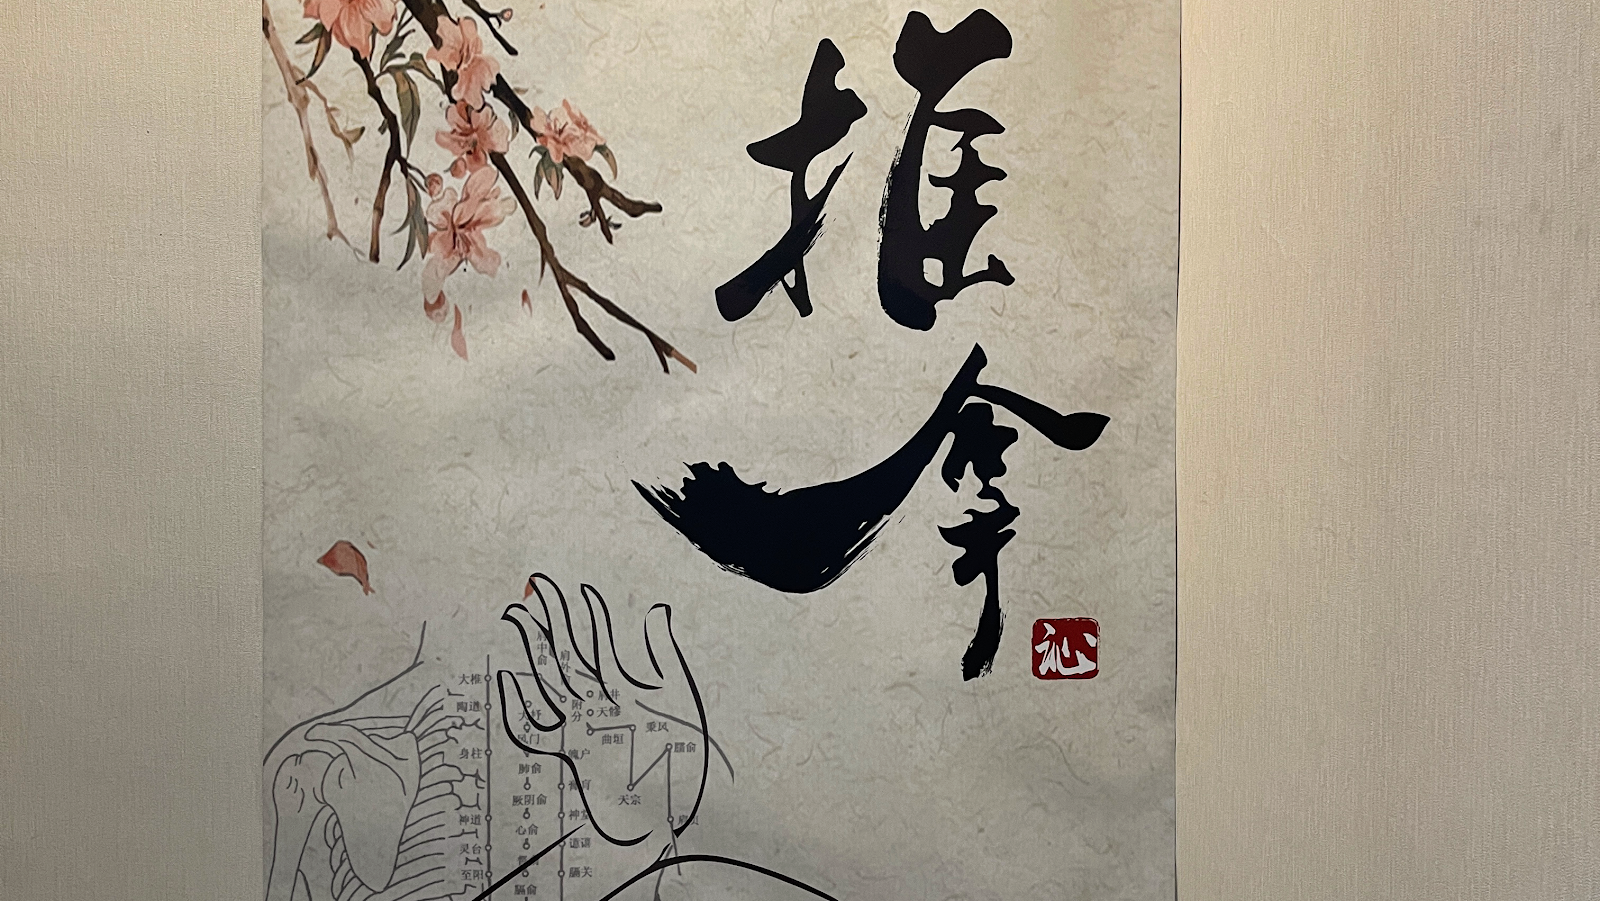 推
拿
沁
肩中俞
肩外
大椎
肩井
陶道
附分
天髎
秉风
风门
曲垣
身柱
魄户
臑俞
肺俞
厥阴俞
天宗
神道
神堂
心俞
灵台
譩譆
至阳
膈关
膈俞